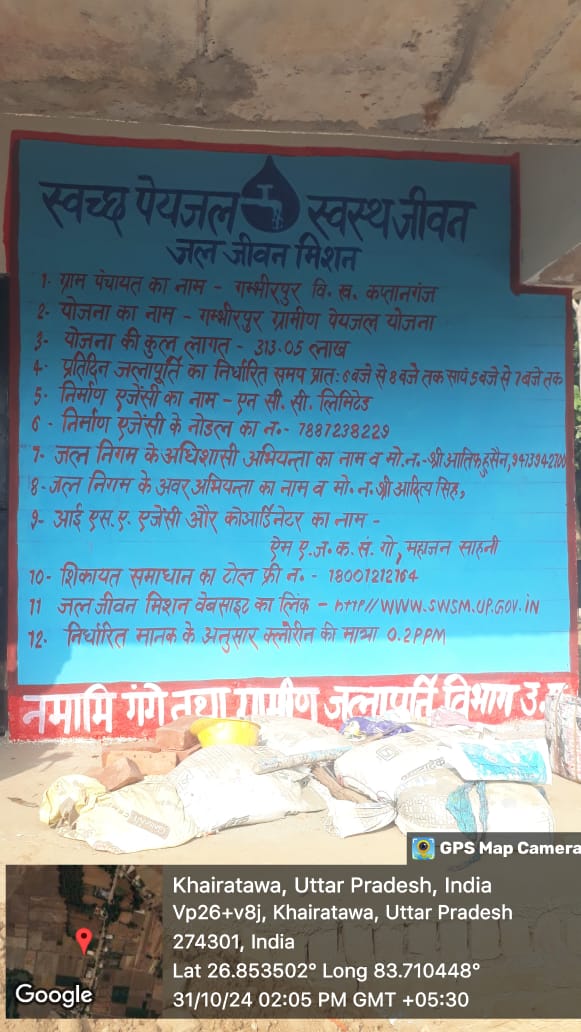 स्वच्छ पेयजल स्वस्थ जीवन
जल जीवन मिशन
1- ग्राम पंचायत का नाम - गम्भीरपुर वि. ख. कप्तानगंज
2- योजना का नाम - गम्भीरपुर ग्रामीण पेयजल योजना
3- योजना की कुल लागत - 313.05 लाख
4- प्रतिदिन जलापूर्ति का निर्धारित समय प्रात: 6 बजे से 8 बजे तक सायं 5 बजे से 7 बजे तक
5- निर्माण एजेंसी का नाम - एन सी. सी. लिमिटेड
6 - निर्माण एजेंसी के नोडल का न.- 7887238229
7- जल निगम के अधिशासी अभियन्ता का नाम व मो.न.-श्री आतिफ हुसैन,
8-जल निगम के अवर अभियन्ता का नाम व मो. न. श्री आदित्य सिंह,
9- आई एस.ए. एजेंसी और कोआर्डिनेटर का नाम -
ऐम ए.ज.क.सं. गो, महाजन साहनी
10- शिकायत समाधान का टोल फ्री न. - 18001212164
11 जल जीवन मिशन वेबसाइट का लिंक - http//WWW.SWSM.UP.GOV.IN
12. निर्धारित मानक के अनुसार क्लोरीन की मात्रा 0.2PPM
नमामि गंगे तथा ग्रामीण जलापूर्ति विभाग उ.प्र.
GPS Map Camera
Khairatawa, Uttar Pradesh, India
Vp26+v8j, Khairatawa, Uttar Pradesh
274301, India
Lat 26.853502° Long 83.710448°
31/10/24 02:05 PM GMT +05:30
Google